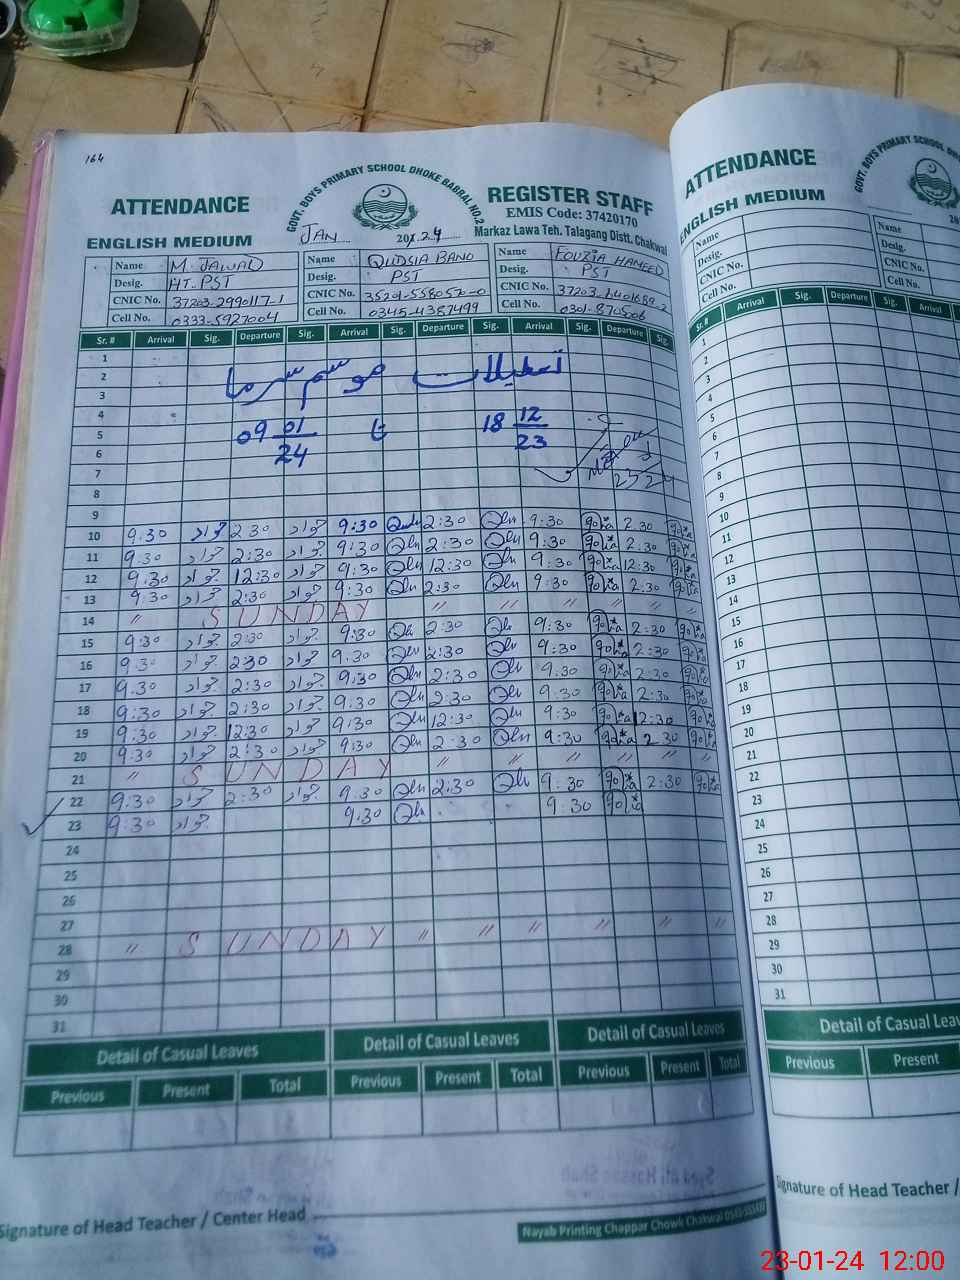 164
ATTENDANCE
GOVT. BOYS PRIMARY SCHOOL DHOKE BABRAL NO.2
REGISTER STAFF
EMIS Code: 37420170
ENGLISH MEDIUM
JAN 2024
Markaz Lawa Teh. Talagang Distt. Chakwal
Name M. JAWAD Name QUDSIA BANO Name FOUZIA HAMEED
Desig. HT. PST Desig. PST Desig. PST
CNIC No. 37203-2990117-1 CNIC No. CNIC No.
Cell No. 0333-5927004 Cell No. 0345-4387499 Cell No. 0301-870506
Sr. # Arrival Sig. Departure Sig. Arrival Sig. Departure Sig. Arrival Sig. Departure Sig.
1
2 تعطیلات موسم سرما
3
4
5 18 12/23 تا 09 01/24
6
7
8
9
10 9:30 جواد 2:30 جواد 9:30 2:30 9:30 2:30
11 9:30 جواد 2:30 جواد 9:30 2:30 9:30 2:30
12 9:30 جواد 12:30 جواد 9:30 12:30 9:30 12:30
13 9:30 جواد 2:30 جواد 9:30 2:30 9:30 2:30
14 " SUNDAY " " " " " "
15 9:30 جواد 2:30 جواد 9:30 2:30 9:30 2:30
16 9:30 جواد 2:30 جواد 9:30 2:30 9:30 2:30
17 9:30 جواد 2:30 جواد 9:30 2:30 9:30 2:30
18 9:30 جواد 2:30 جواد 9:30 2:30 9:30 2:30
19 9:30 جواد 12:30 جواد 9:30 12:30 9:30 12:30
20 9:30 جواد 2:30 جواد 9:30 2:30 9:30 2:30
21 " SUNDAY " " " " " "
22 9:30 جواد 2:30 جواد 9:30 2:30 9:30 2:30
23 9:30 جواد 9:30 9:30
24
25
26
27
28 " SUNDAY " " " " " "
29
30
31
Detail of Casual Leaves Detail of Casual Leaves Detail of Casual Leaves
Previous Present Total Previous Present Total Previous Present Total
Signature of Head Teacher / Center Head
Nayab Printing Chappar Chowk Chakwal
ATTENDANCE
GOVT. BOYS PRIMARY SCHOOL DHOK
ENGLISH MEDIUM
Name Name
Desig. Desig.
CNIC No. CNIC No.
Cell No. Cell No.
Sr. # Arrival Sig. Departure Sig. Arrival
1
2
3
4
5
6
7
8
9
10
11
12
13
14
15
16
17
18
19
20
21
22
23
24
25
26
27
28
29
30
31
Detail of Casual Leav
Previous Present
Signature of Head Teacher /
23-01-24 12:00